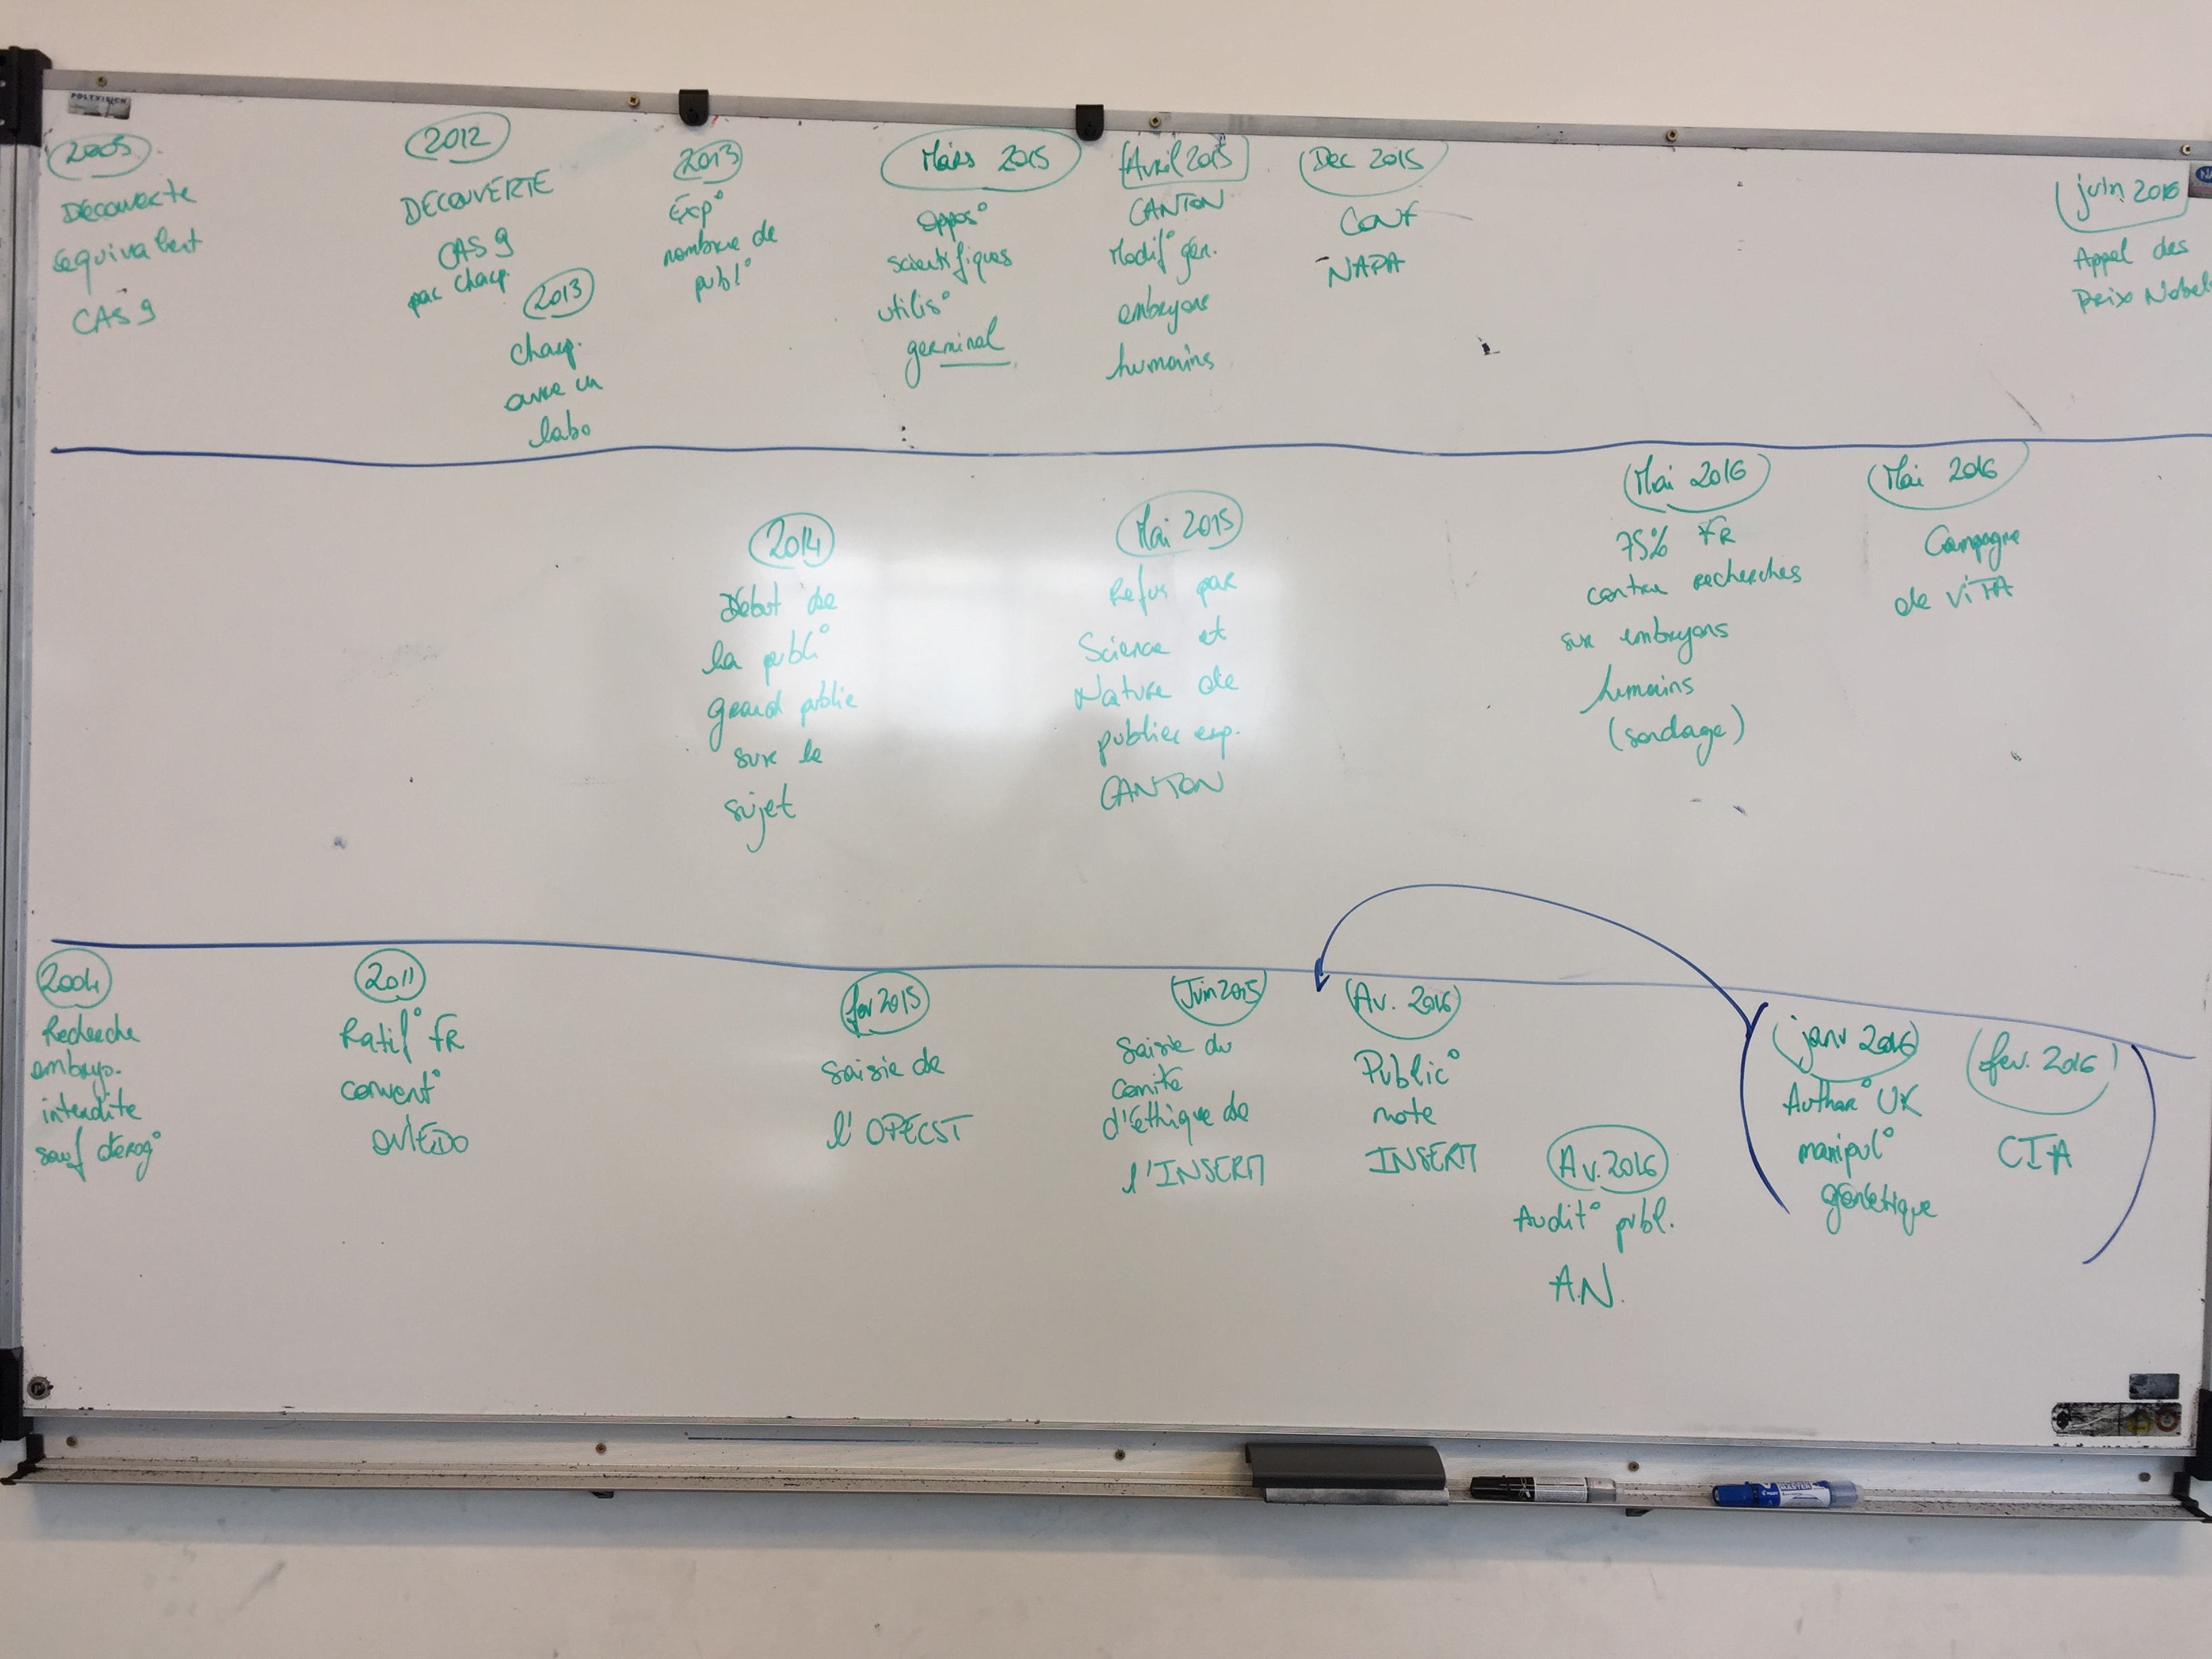 POLYVISION
2005
Découverte
équivalent
CAS 9
2012
DECOUVERTE
CAS 9
par charp.
2013
charp.
ouvre un
labo
2013
Exp°
nombre de
publ°
Mars 2015
Oppos°
scientifiques
utilis°
germinal
Avril 2015
CANTON
Modif° gén.
embryons
humains
Dec 2015
CONF
NAPA
juin 2016
Appel des
Prix Nobel
2014
Début de
la publi°
grand public
sur le
sujet
Mai 2015
Refus par
Science et
Nature de
publier exp.
CANTON
Mai 2016
75% FR
contre recherches
sur embryons
humains
(sondage)
Mai 2016
Campagne
de VITA
2004
Recherche
embryo.
interdite
sauf dérog°
2011
Ratif° FR
convent°
OVIEDO
fev 2015
Saisie de
l'OPECST
Juin 2015
Saisie du
Comité
d'éthique de
l'INSERM
Av. 2016
Public°
note
INSERM
Av. 2016
Audit° publ.
A.N.
janv 2016
Author° UK
manipul°
génétique
fev. 2016
CIA